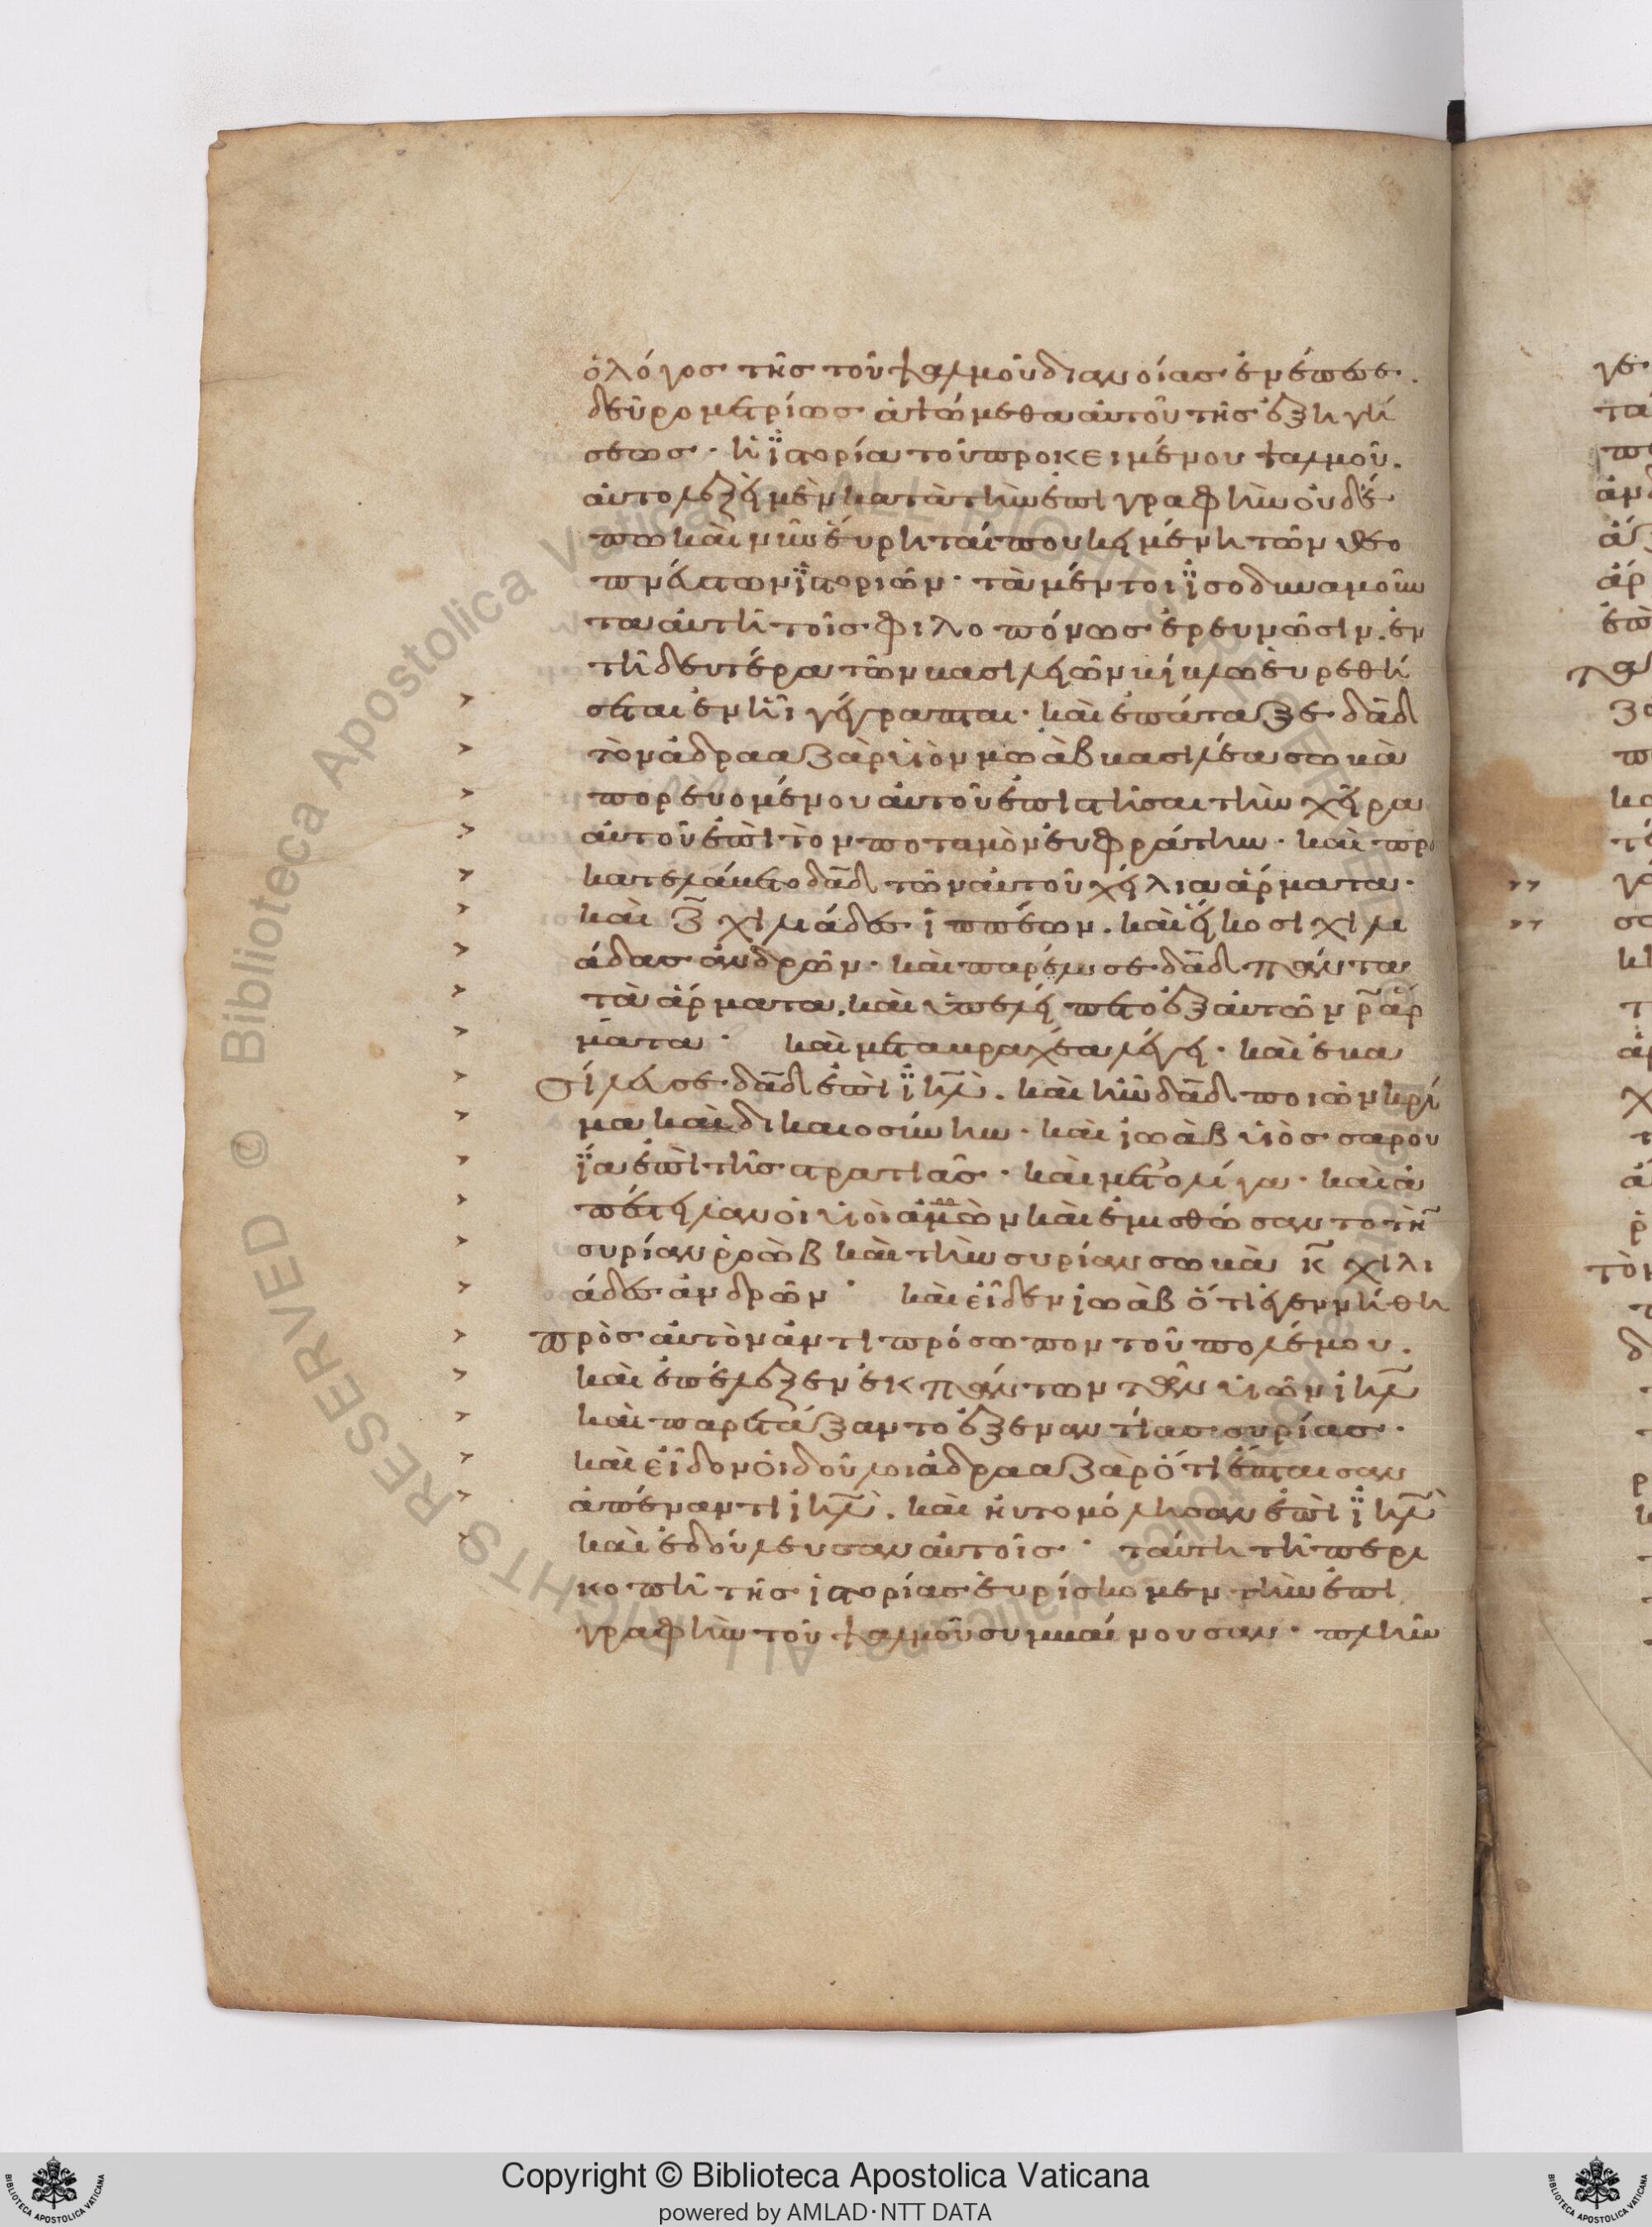 ὁ λόγος τῆς τοῦ ψαλμοῦ διανοίας ἐνέπεσε.
δεῦρο μετρίως ἁψώμεθα αὐτοῦ τῆς ἐξηγή
σεως· ἡ ἱστορία τοῦ προκειμένου ψαλμοῦ.
αὐτολεξεὶ μὲν κατὰ τὴν ἐπιγραφὴν οὐδέ
πω καὶ νῦν εὕρηταί που κειμένη τῶν θεο
πνεύστων ἱστοριῶν· τὰ μέντοι ἰσοδυναμοῦν
τα αὐτῆ τοῖς φιλοπόνως ἐρευνῶσιν. ἐν
τῆ δευτέρα τῶν βασιλειῶν βίβλω εὑρεθή
σεται ἐν ἧι γέγραπται· καὶ ἐπάταξε δαδ
τὸν ἀδρααζὰρ υἱὸν μωὰβ βασιλέα σωβὰ
πορευομένου αὐτοῦ ἐπιστῆσαι τὴν χεῖρα
αὐτοῦ ἐπὶ τὸν ποταμὸν εὐφράτην· καὶ προ
κατελάβετο δαδ τῶν αὐτοῦ χείλια ἅρματα·
καὶ ζ χιλιάδες ἱππέων. καὶ εἴκοσι χιλι
άδας ἀνδρῶν· καὶ παρέλυσε δαδ πάντα
τὰ ἅρματα. καὶ ὑπελείπετο ἐξ αὐτῶν ρ ἅρ
ματα· καὶ μετὰ βραχέα λέγει· καὶ ἐβα
σίλευσε δαδ ἐπὶ ιηλ. καὶ ἦν δαδ ποιῶν κρί
μα καὶ δικαιοσύνην· καὶ ἰωὰβ υἱὸς σαρου
ΐα ἐπὶ τῆς στρατιᾶς· καὶ μετ' ὀλίγα· καὶ ἀ
πέστειλαν οἱ υἱοὶ ἀμμὼν καὶ ἐμισθώσαντο τὴν
συρίαν ῥοὼβ καὶ τὴν συρίαν σωβὰ κ χιλι
άδες ἀνδρῶν· καὶ εἶδεν ἰωὰβ ὅτι ἐγεννήθη
πρὸς αὐτὸν ἀντιπρόσωπον τοῦ πολέμου.
καὶ ἐπέλεξεν ἐκ πάντων τῶν υἱῶν ιηλ
καὶ παρετάξαντο ἐξεναντίας συρίας·
καὶ εἶδον οἱ δοῦλοι ἀδρααζὰρ ὅτι ἔπταισαν
ἀπέναντι ιηλ. καὶ ηὐτομόλησαν ἐπὶ ιηλ
καὶ ἐδούλευσαν αὐτοῖς· ταύτη τῆ περι
κοπῆ τῆς ἱστορίας εὑρίσκομεν τὴν ἐπι
γραφὴν τοῦ ψαλμοῦ συμβαίνουσαν· πλὴν
Copyright © Biblioteca Apostolica Vaticana
powered by AMLAD·NTT DATA